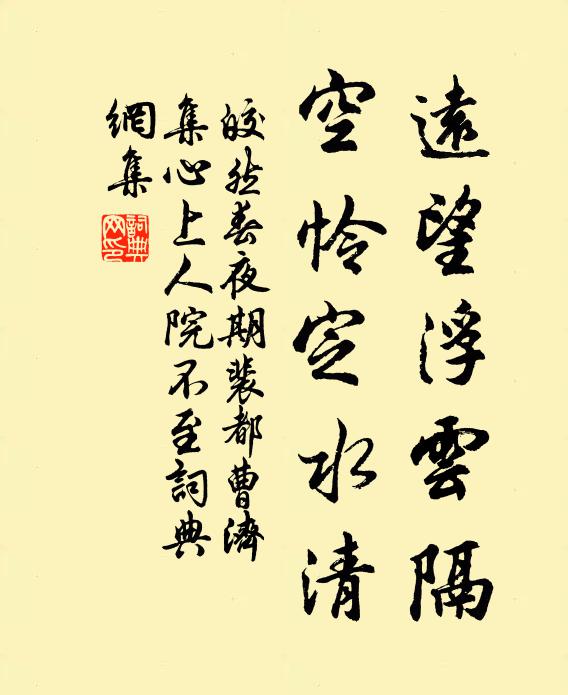 遠望浮雲隔
空憐定水清
皎然春夜期裴都曹濟
集心上人院不至詞典
網集
詞典網印